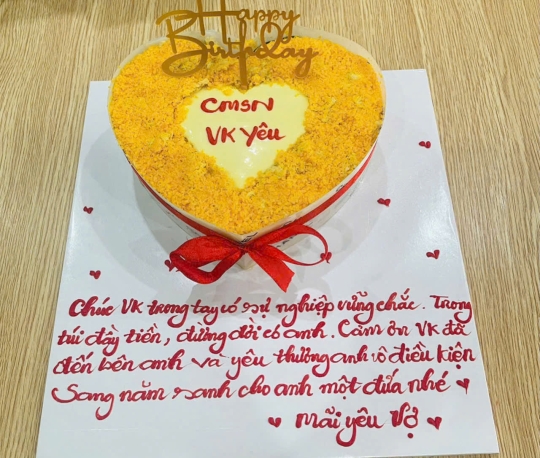 Happy
Birthday
CMSN
VK Yêu
Chúc VK trong tay có sự nghiệp vững chắc. Trong
túi đầy tiền, đường đời có anh. Cảm ơn VK đã
đến bên anh và yêu thương anh vô điều kiện
Sang năm sanh cho anh một đứa nhé
Mãi yêu Vợ